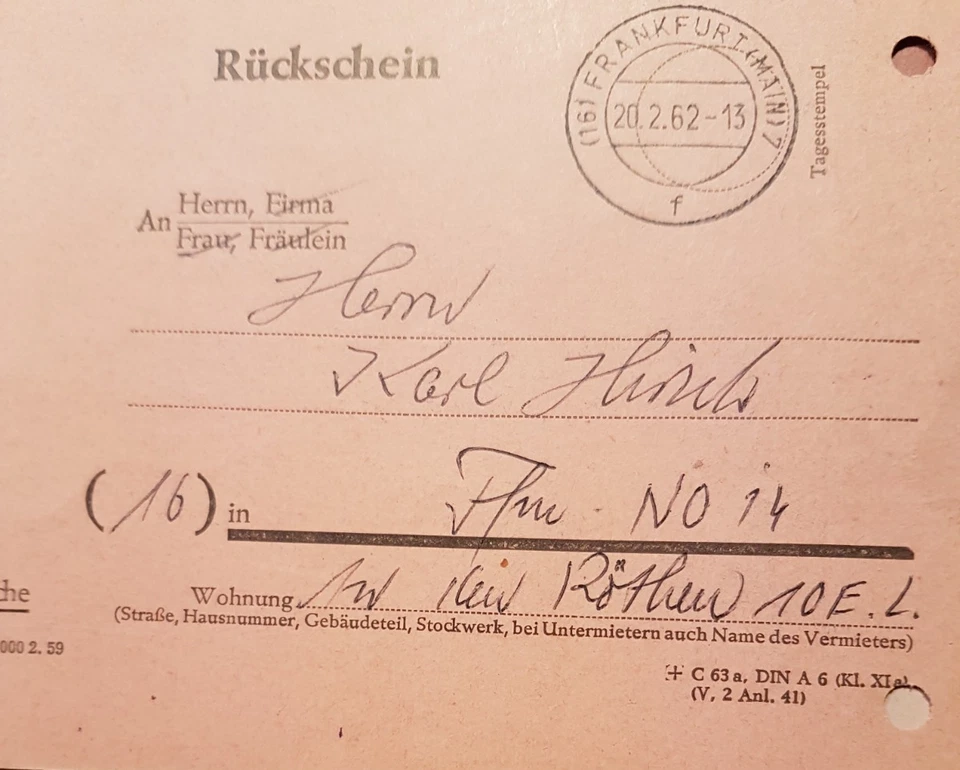 Rückschein
(16) FRANKFURT (MAIN) 7
20.2.62-13
f
Tagesstempel
An Herrn, Firma
Frau, Fräulein
Herrn
Karl Hirsch
(16) in Ffm. NO 14
Wohnung An den Röthen 10 E. L.
(Straße, Hausnummer, Gebäudeteil, Stockwerk, bei Untermietern auch Name des Vermieters)
che
000 2. 59
C 63 a, DIN A 6 (Kl. XI a)
(V, 2 Anl. 41)